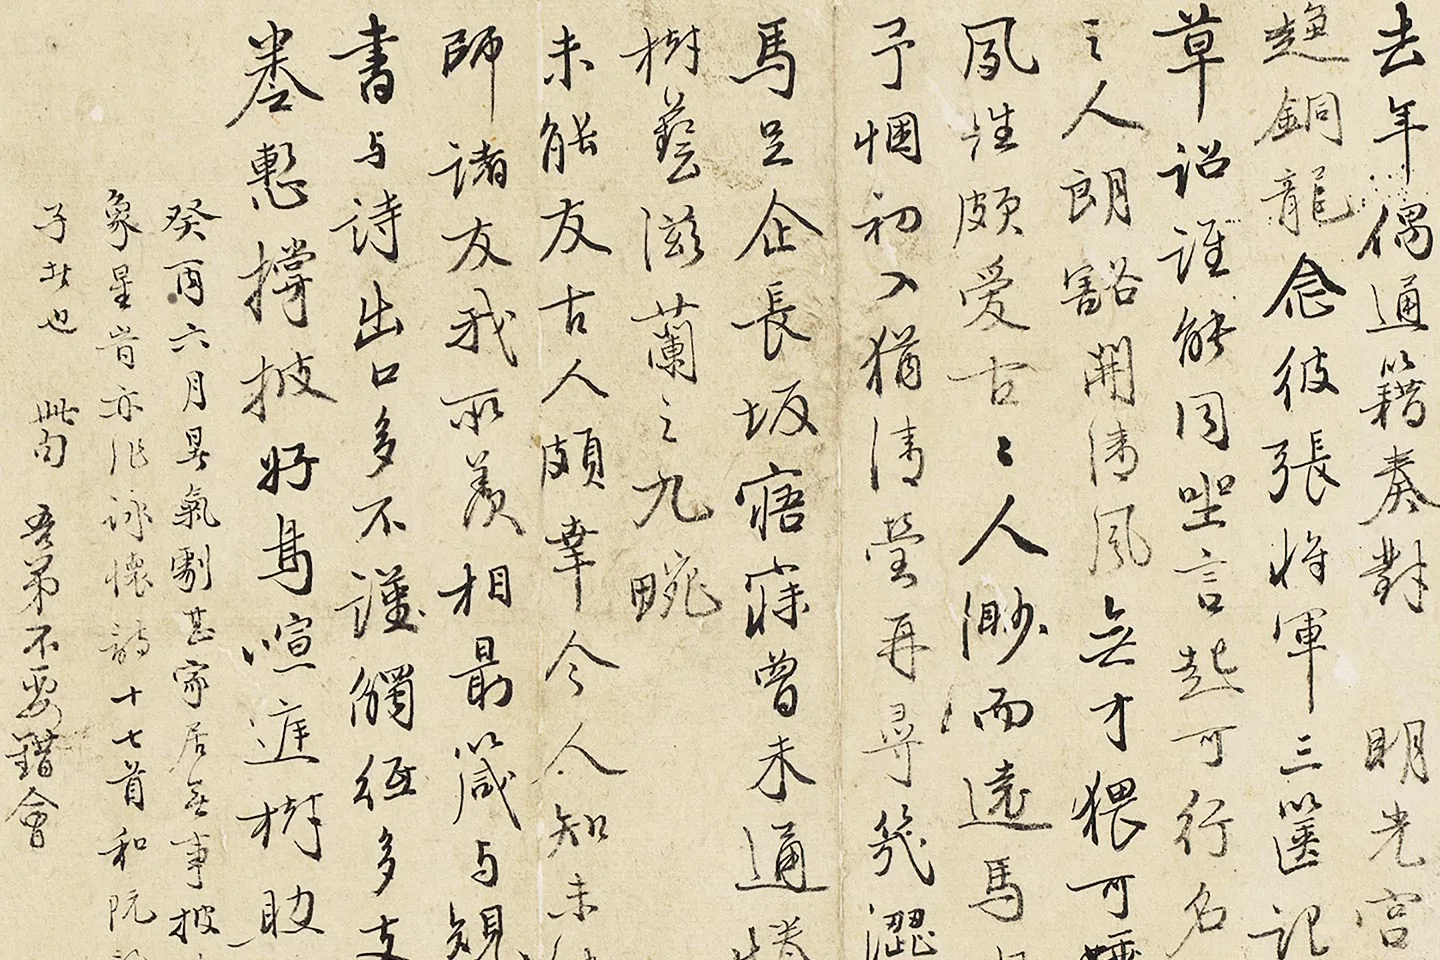 去年偶通籍奏對 明光宮
趨銅龍念彼張將軍三篋記
草詔誰能同坐言起可行名
之人朗豁開清風無才猥可
鳳性頗愛古〻人渺而遠馬
予悃初入猶清瑩再尋幾澀
馬足企長坂寤寐曾未通
樹藝滋蘭之九畹
未能友古人頗幸今人知未
師諸友我所羨相最箴與規
書与詩出口多不謹觸紙多支
卷慙撏披好鳥喧遊樹助
癸酉六月暑氣劇甚家居無事披
象星有亦作詠懷詩十七首和阮
子者也 此句 吾弟不要錯會